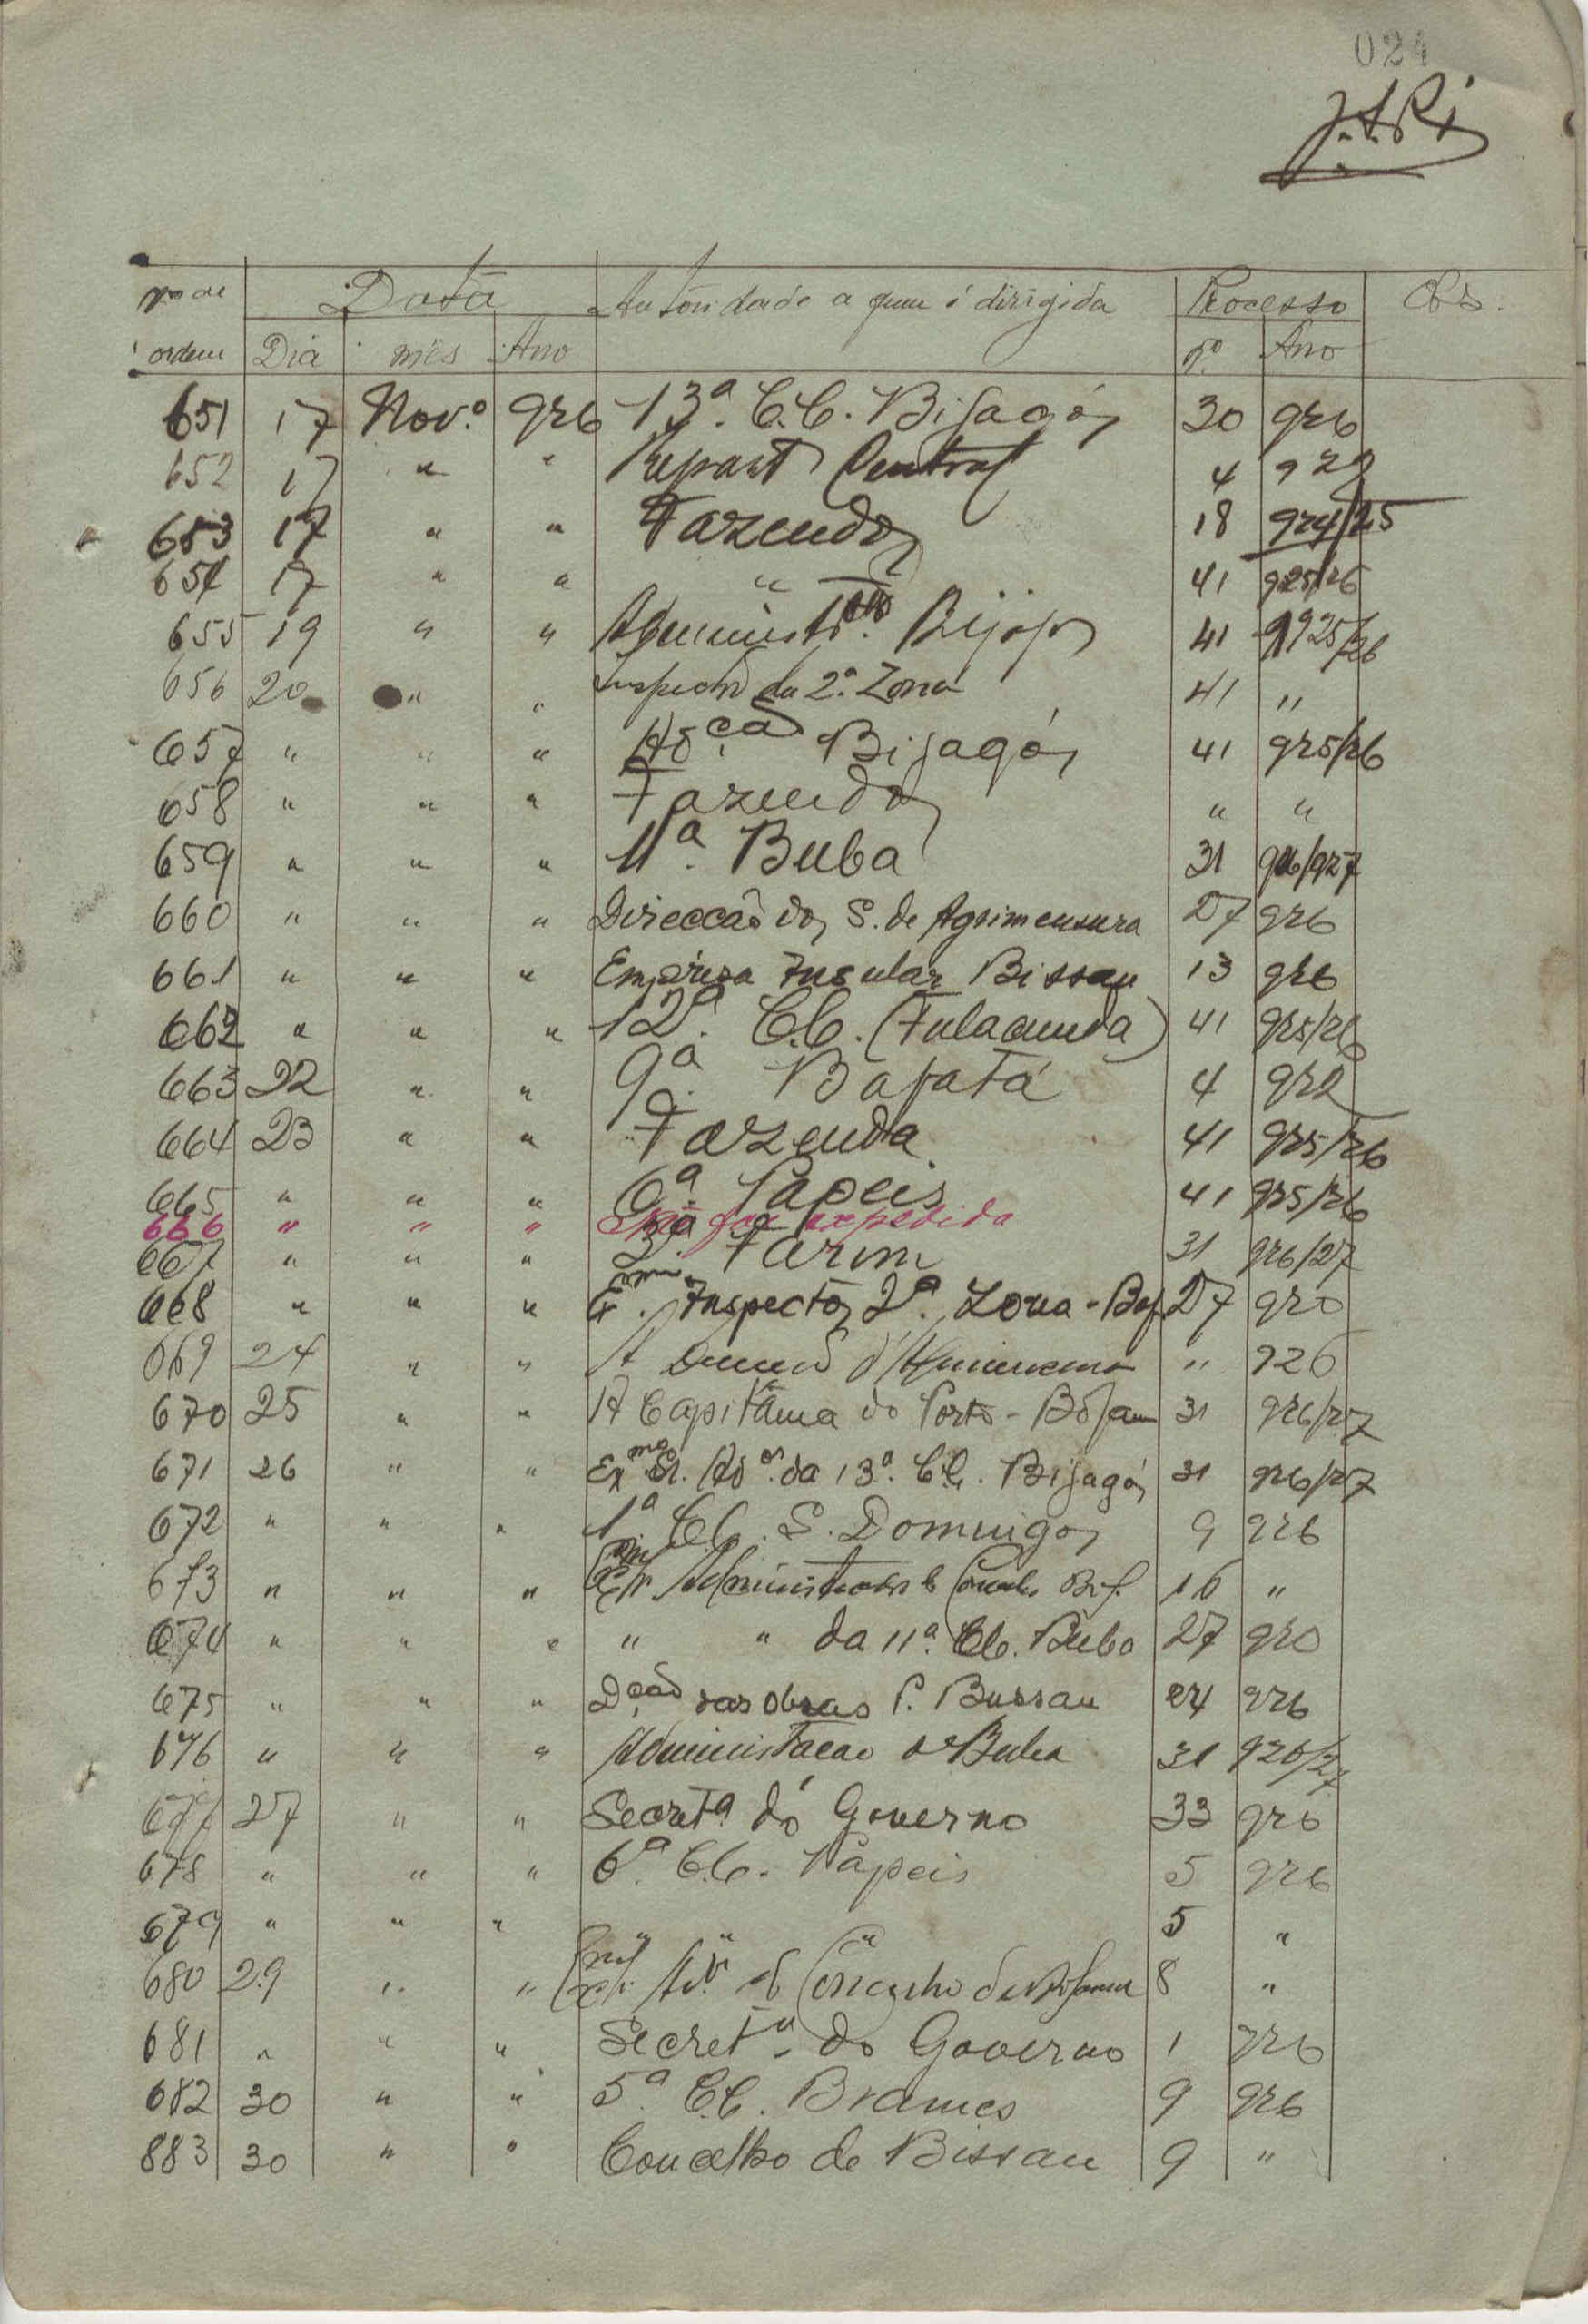 024
Nº de Data Autoridade a quem é dirigida Processo Obs.
ordem Dia mês Ano nº Ano
651 17 Nov.º 926 13ª. C.C. Bijagós 30 926
652 17 " " Repart Central 4 922
653 17 " " Fazenda 18 924/25
654 17 " " " 41 925/26
655 19 " " 41 1925/26
656 20 " " Inspector da 2ª. Zona 41 "
657 " " " Adção Bijagós 41 925/26
658 " " " Fazenda " "
659 " " " 11ª. Buba 31 926/927
660 " " " Direcção dos S. de Agrimensura 27 926
661 " " " Empreza Insular Bissau 13 926
662 " " " 12ª. C.C. (Fulacunda) 41 925/26
663 22 " " 9ª. Bafatá 4 922
664 23 " " Fazenda 41 925/26
665 " " " 6ª. Papeis 41 925/26
666 " " " Não foi expedida
667 " " " 3ª. Farim 31 926/27
668 " " " Exmo. Inspector 2ª. Zona - Baf. 27 920
669 24 " " A " 926
670 25 " " A Capitania do Porto - Bolama 31 926/27
671 26 " " Exmo Sr. Ador. da 13ª. C.C. Bijagós 31 926/27
672 " " " 1ª C.C. S. Domingos 9 926
673 " " " Administrador 16 "
674 " " " " " da 11ª. C.C. Buba 27 920
675 " " " Dção das Obras P. Bussau 24 926
676 " " " Administração de Buba 31 926/27
677 27 " " Secretª. do Governo 33 926
678 " " " 6ª. C.C. Papeis 5 926
679 " " " " " " 5 "
680 29 " " Concelho de Bolama 8 "
681 " " " Secretª. do Governo 1 926
682 30 " " 5ª C.C. Brames 9 926
883 30 " " Concelho de Bissau 9 "